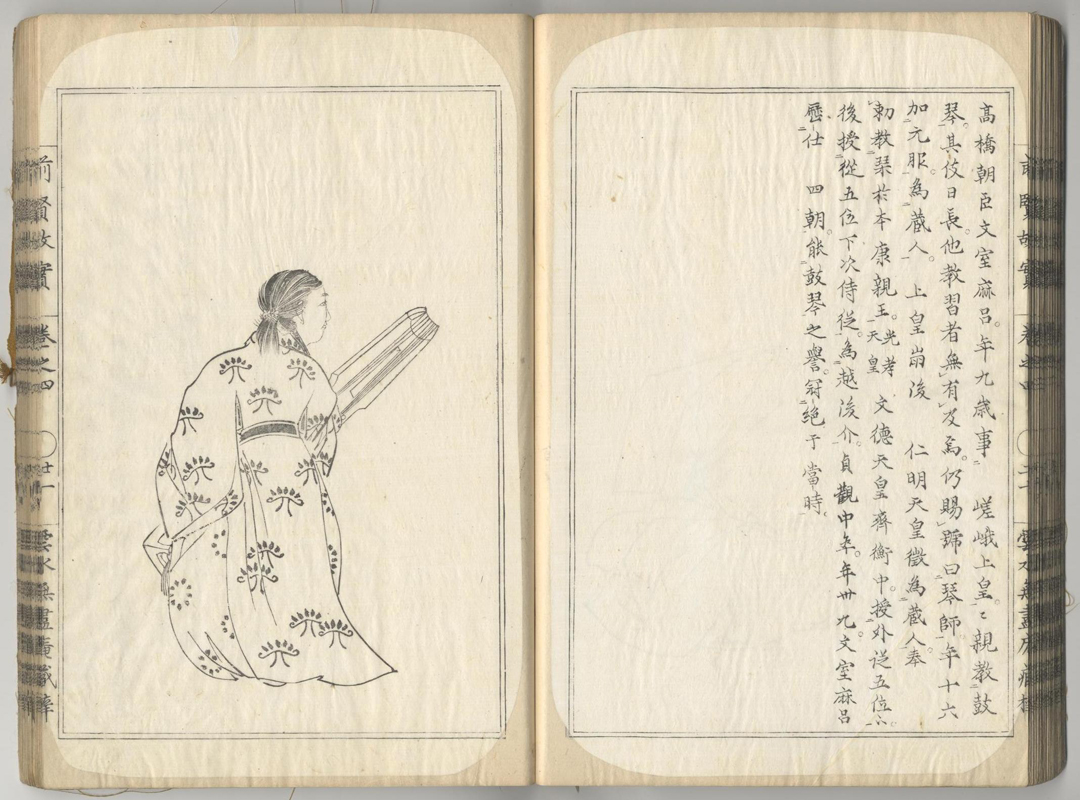 高橋朝臣文室麻呂。年九歲事 嵯峨上皇。〻親教鼓
琴。其伎日長。他教習者無有及焉。仍賜號曰琴師。年十六
加元服。為藏人。 上皇崩後 仁明天皇徵為藏人。奉
勅教琹於本康親王。光孝天皇 文德天皇齊衡中。授外從五位下。
後授從五位下次侍從。為越後介。貞觀中卒。年卅九。文室麻呂
歷仕 四朝。能鼓琴之譽。冠絕于當時。
前賢故實 卷之四 ○廿一 雲水無盡庵藏梓